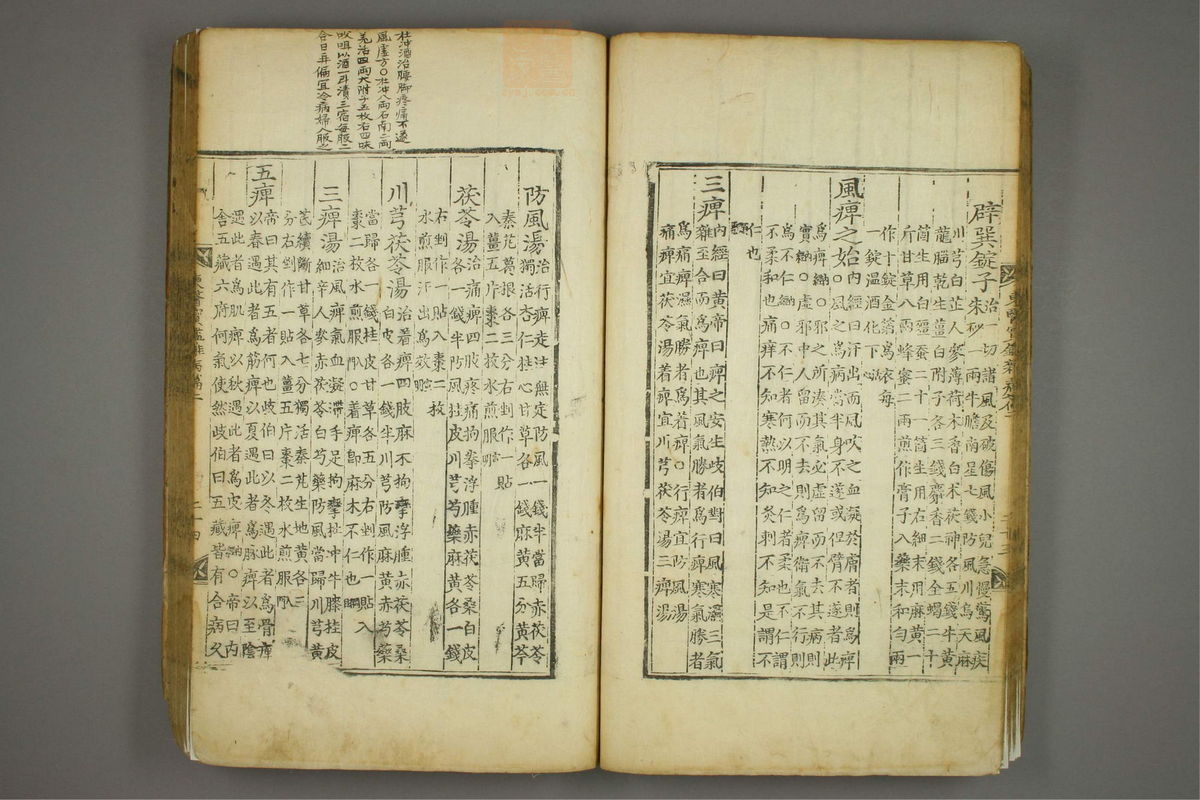 辟巽錠子治一切諸風及破傷風小兒急慢驚風疾
朱砂一兩牛膽南星七錢防風川烏天麻
川芎白芷人參薄荷木香白朮茯神各五錢牛黃
龍腦乾生薑白附子各三錢麝香二錢全蝎二十
箇生用白殭蚕二十一箇生用右細末用麻黃一
斤甘草八兩蜂蜜二兩煎作膏子入藥末和勻兩
作十錠金箔爲衣每
一錠溫酒化下
風痺之始內經曰汗出而風吹之血凝於膚者則爲痺
○風之爲病當半身不遂或但臂不遂者此
爲痺綱○邪之所湊其氣必虛留而不去其病則
實綱○虛邪中人留而不去則爲痺衛氣不行則
爲不仁綱○不仁者何以明之仁者柔也不仁謂
不柔和也痛痒不知寒熱不知灸刺不知是謂不
仁也
三痺內經曰黃帝曰痺之安生岐伯對曰風寒濕三氣
雜至合而爲痺也其風氣勝者爲行痺寒氣勝者
爲痛痺濕氣勝者爲着痺○行痺宜防風湯
痛痺宜茯苓湯着痺宜川芎茯苓湯三痺湯
杜冲酒治腰脚疼痛不遂
風虛方○杜冲八兩石南二兩
羌活四兩大附子五枚右四味
㕮咀以酒一斗漬三宿每服二
合日再偏宜冷病婦人服之
防風湯治行痺走注無定防風一錢半當歸赤茯苓
獨活杏仁桂心甘草各一錢麻黃五分黃芩
秦艽葛根各三分右剉作一貼
入薑五片棗二枚水煎服
茯苓湯治痛痺四肢疼痛拘攣浮腫赤茯苓桑白皮
各一錢半防風桂皮川芎芍藥麻黃各一錢
右剉作一貼入棗二枚
水煎服汗出爲效
川芎茯苓湯治着痺四肢麻木拘攣浮腫赤茯苓桑
白皮各一錢半川芎防風麻黃赤芍藥
當歸各一錢桂皮甘草各五分右剉作一貼入
棗二枚水煎服○着痺卽麻木不仁也
三痺湯治風痺氣血凝滯手足拘攣杜冲牛膝桂皮
細辛人參赤茯苓白芍藥防風當歸川芎黃
芪續斷甘草各七分獨活秦艽生地黃各三
分右剉作一貼入薑五片棗二枚水煎服
五痺帝曰其有五者何也岐伯曰以冬遇此者爲骨痺
以春遇此者爲筋痺以夏遇此者爲脉痺以至陰
遇此者爲肌痺以秋遇此者爲皮痺○帝曰內
舍五藏六府何氣使然岐伯曰五藏皆有合病久
二十四